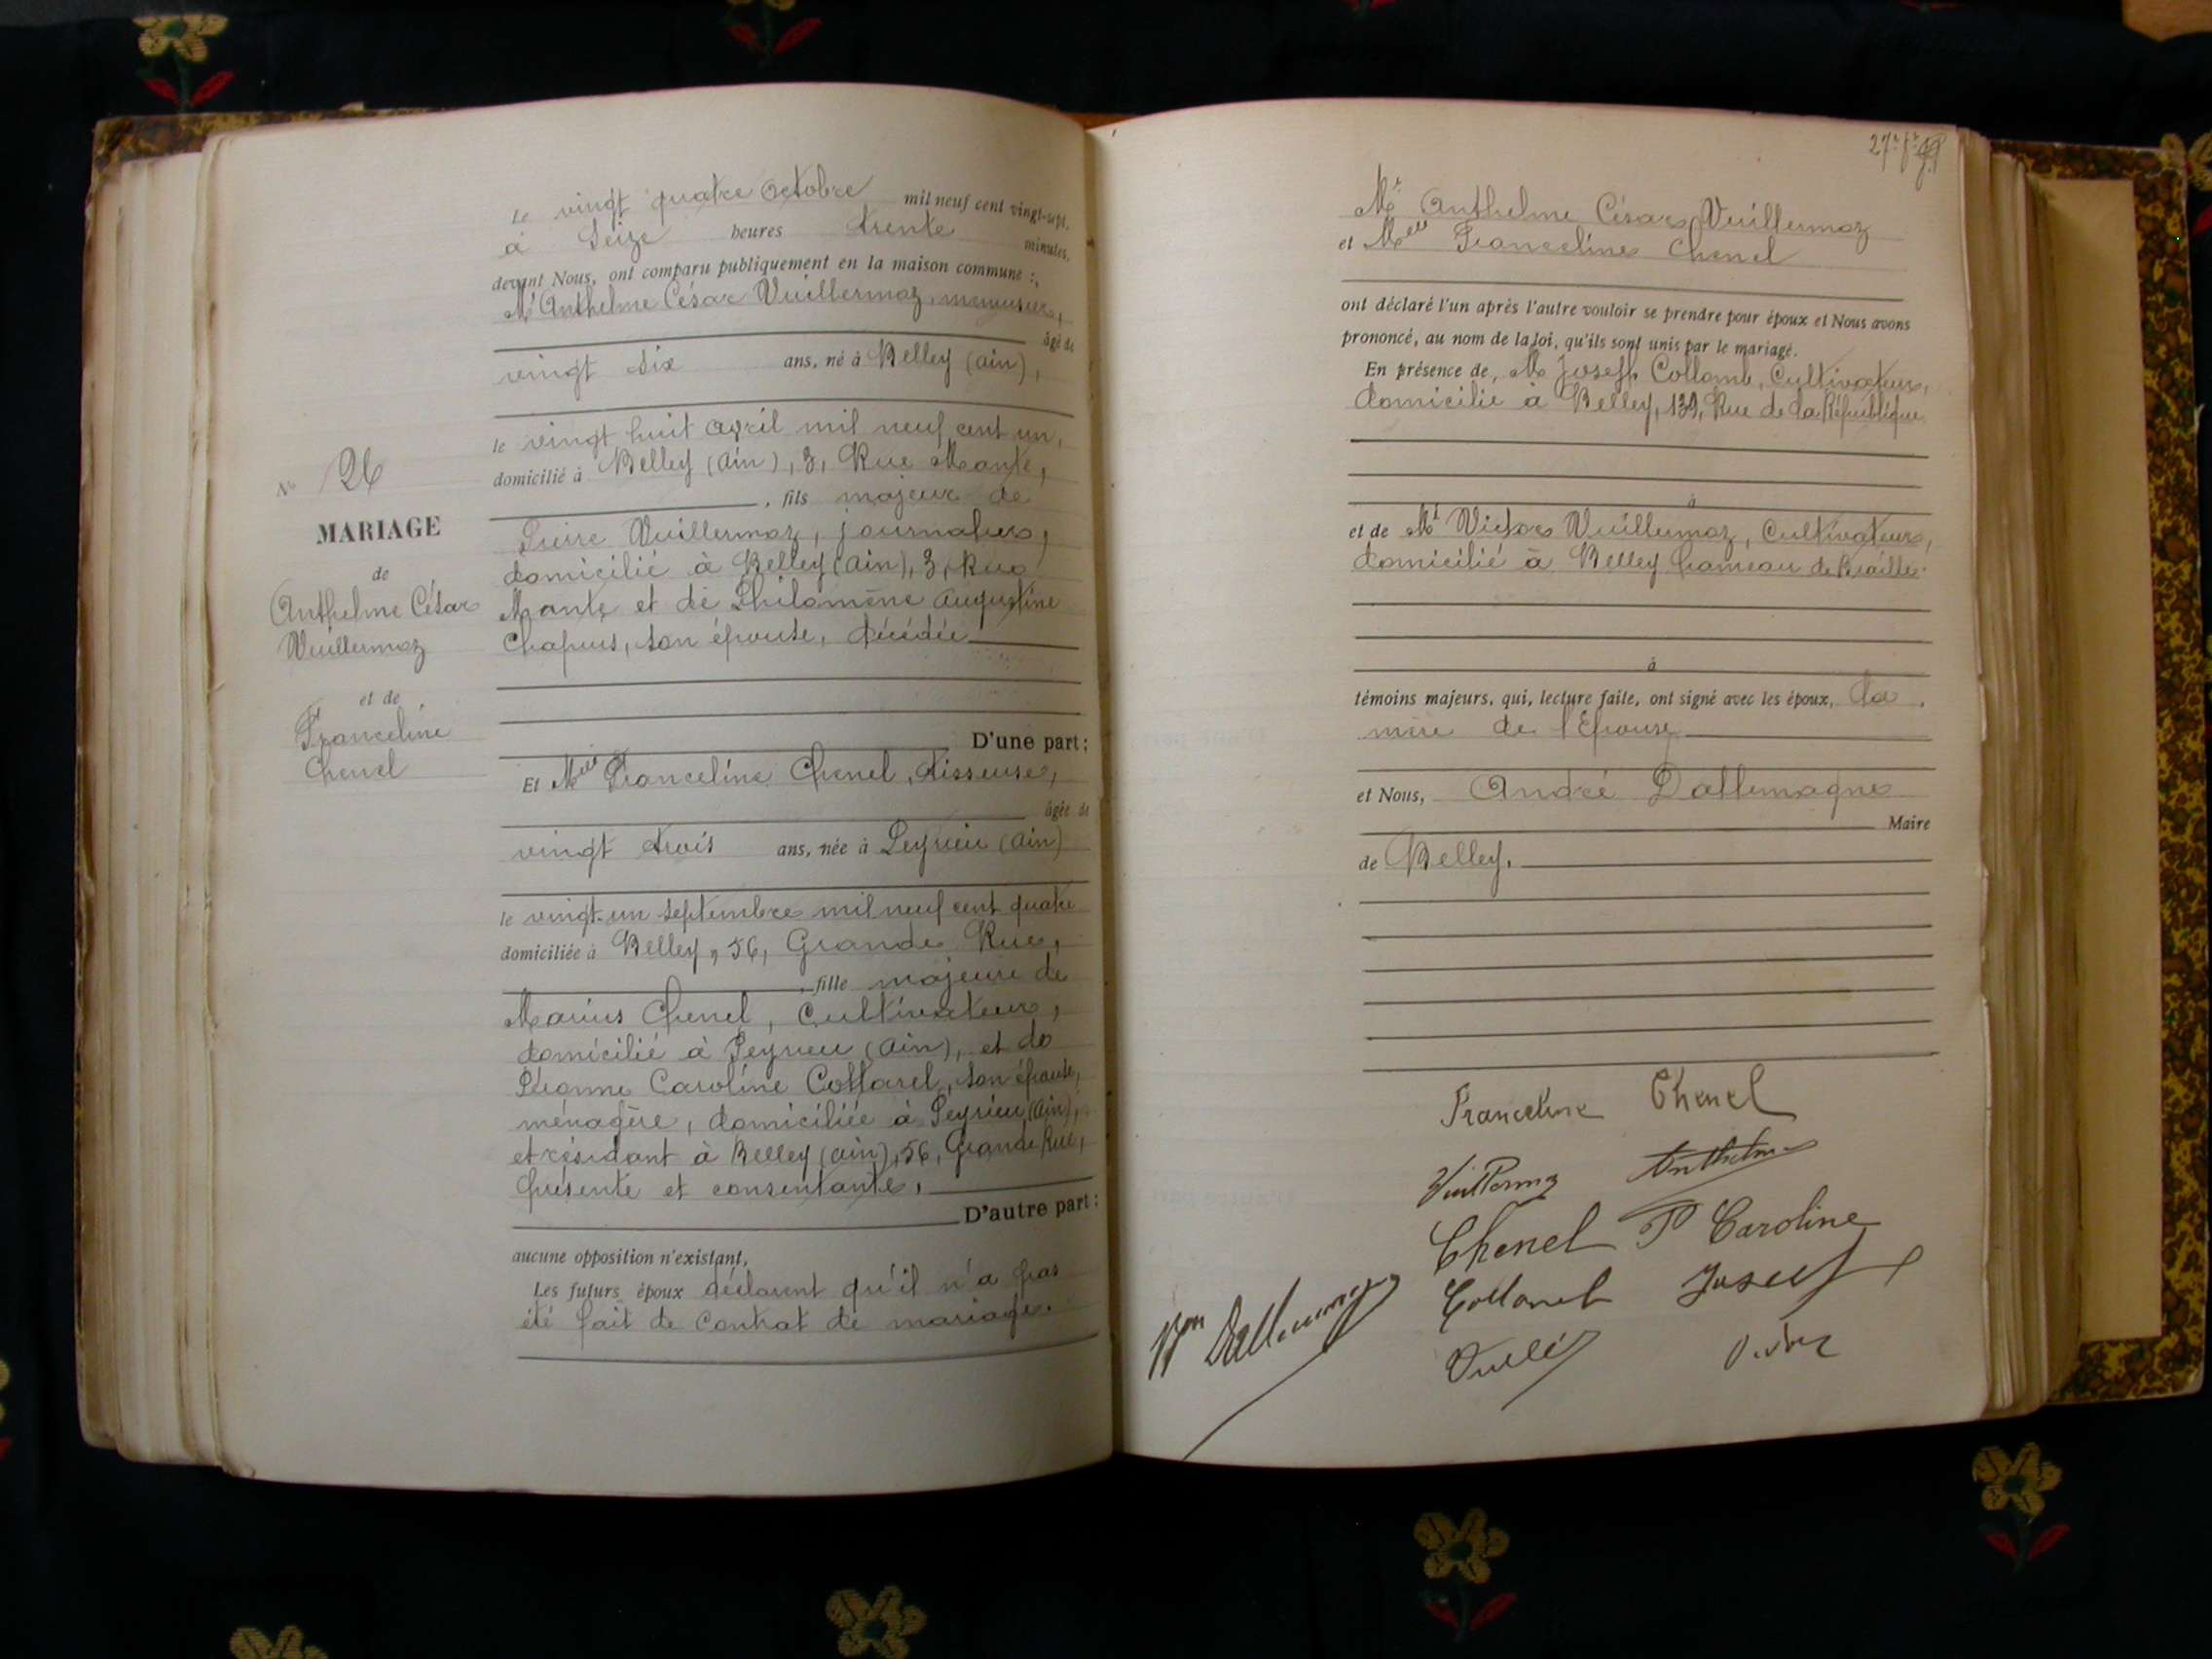 N° 26
MARIAGE
de
Anthelme César
Vuillermoz
et de
Franceline
Chenel
Le vingt quatre Octobre mil neuf cent vingt-sept,
à Seize heures trente minutes,
devant Nous, ont comparu publiquement en la maison commune :
Mr Anthelme César Vuillermoz, menuisier,
âgé de
vingt six ans, né à Belley (Ain),
le vingt huit avril mil neuf cent un,
domicilié à Belley (Ain), 3, Rue Mante,
, fils majeur de
Pierre Vuillermoz, journalier,
domicilié à Belley (Ain), 3, Rue
Mante et de Philomène Augustine
Chapuis, son épouse, décédée
D'une part :
Et Melle Franceline Chenel, tisseuse,
âgée de
vingt trois ans, née à Peyrieu (Ain)
le vingt-un septembre mil neuf cent quatre
domiciliée à Belley, 56, Grande Rue,
, fille majeure de
Marius Chenel, Cultivateur,
domicilié à Peyrieu (Ain), et de
Caroline Collomb, son épouse,
ménagère, domiciliée à Peyrieu (Ain),
et résidant à Belley (Ain), 56, Grande Rue,
présente et consentante,
D'autre part :
aucune opposition n'existant,
Les futurs époux déclarent qu'il n'a pas
été fait de Contrat de mariage.
Mr Anthelme César Vuillermoz
et Melle Franceline Chenel
ont déclaré l'un après l'autre vouloir se prendre pour époux et Nous avons
prononcé, au nom de la loi, qu'ils sont unis par le mariage.
En présence de, Mr Joseph Collomb, Cultivateur,
domicilié à Belley, 139, Rue de la République
à
et de Mr Victor Vuillermoz, Cultivateur,
domicilié à Belley hameau de
à
témoins majeurs, qui, lecture faite, ont signé avec les époux, la
mère de l'Epouse
et Nous, André Dallemagne
Maire
de Belley.
Franceline Chenel
Vuillermoz Anthelme
Chenel P Caroline
Collomb Joseph
Dallemagne